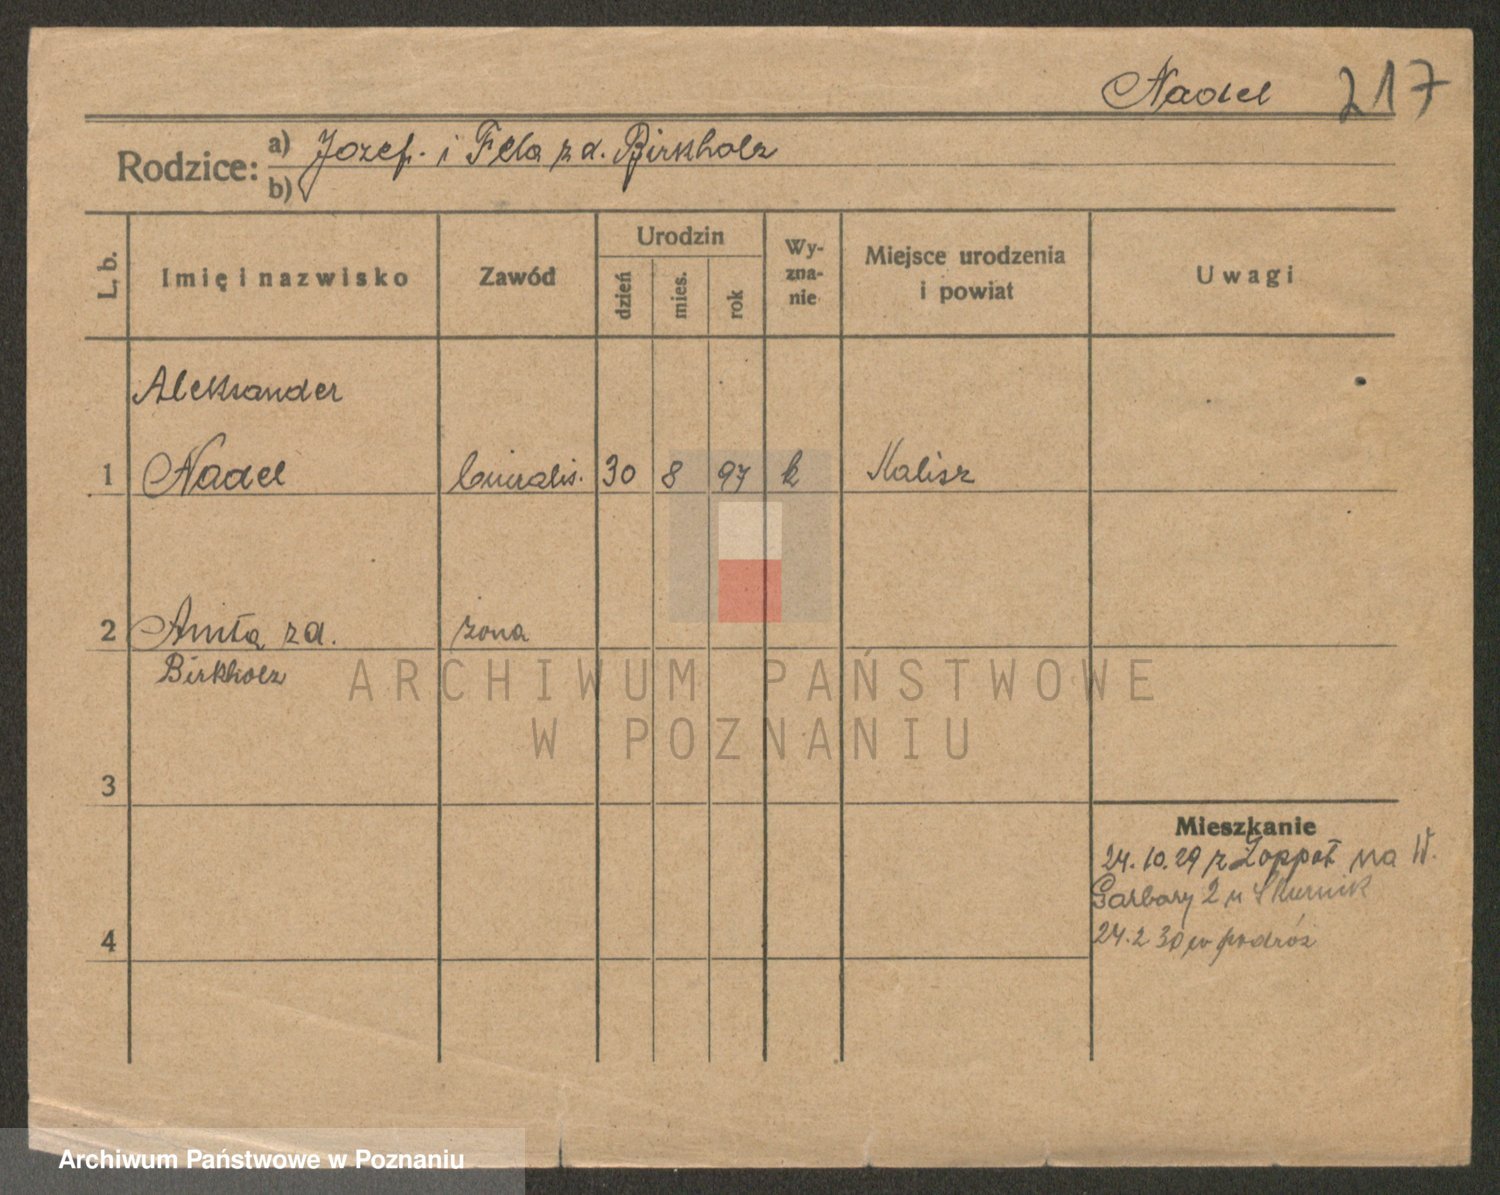 Nadel 217
Rodzice: a) Jozef. i Fela z d. Birkholz
b)
L. b. Imię i nazwisko Zawód Urodzin Wy-zna-nie Miejsce urodzenia i powiat Uwagi
dzień mies. rok
Aleksander
1 Nadel 30 8 97 k Kalisz
2 Anita z d. żona
Birkholz
ARCHIWUM PAŃSTWOWE
W POZNANIU
3
Mieszkanie
24.10.29 z Zoppot na W.
Garbary 2 u Skurnik
4
24.2 30 w podróż
Archiwum Państwowe w Poznaniu